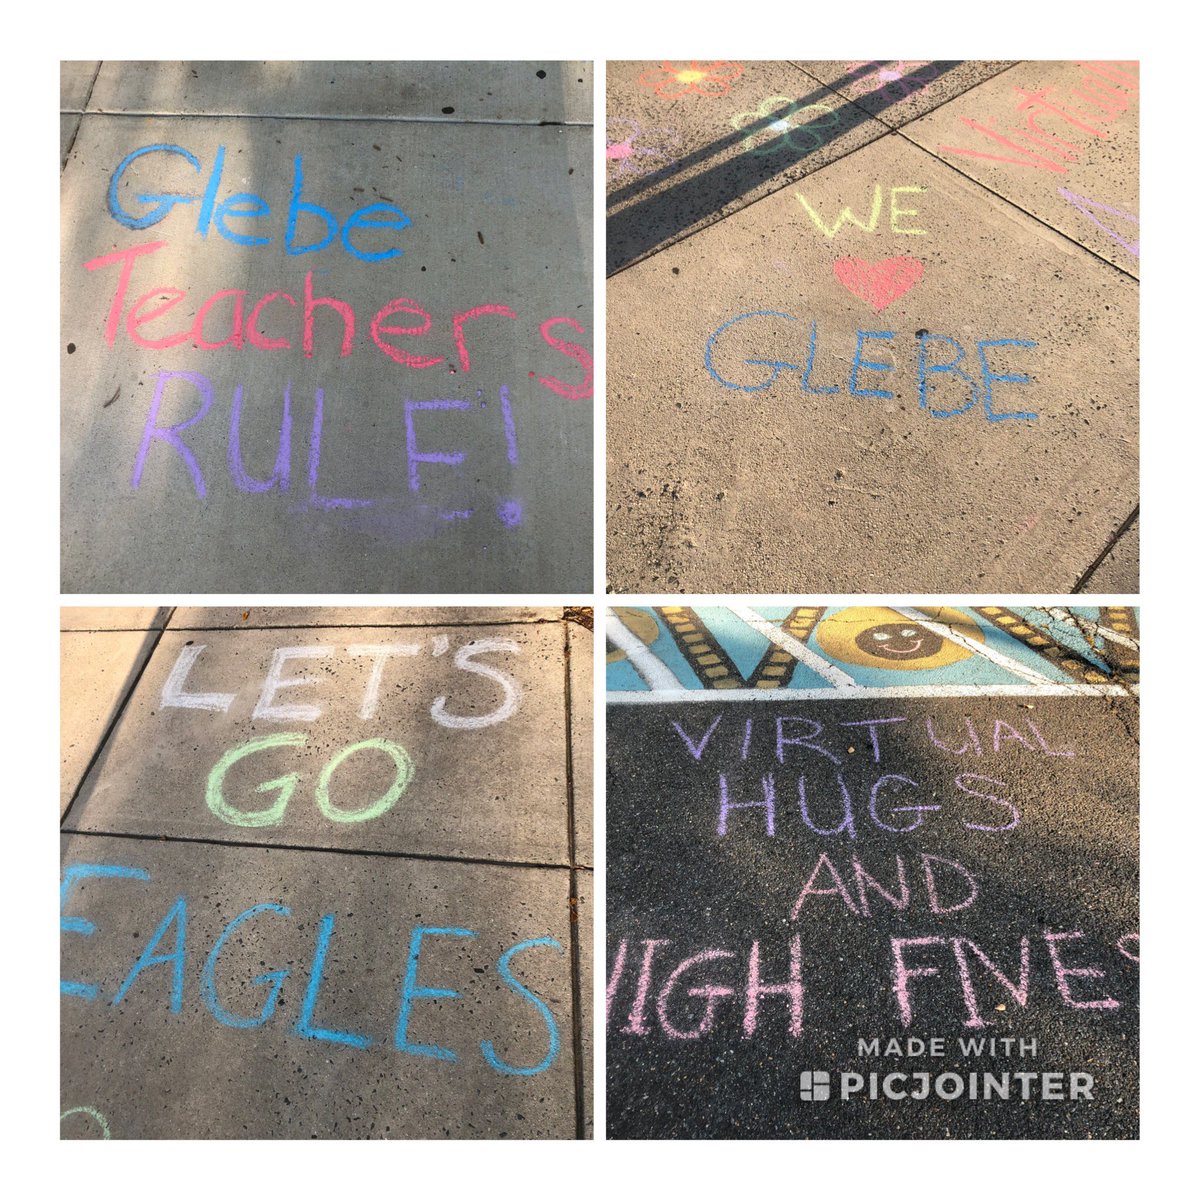 Glebe
Teachers
RULE!
Virtual
WE
GLEBE
LET'S
GO
EAGLES
VIRTUAL
HUGS
AND
HIGH FIVES
MADE WITH
PICJOINTER